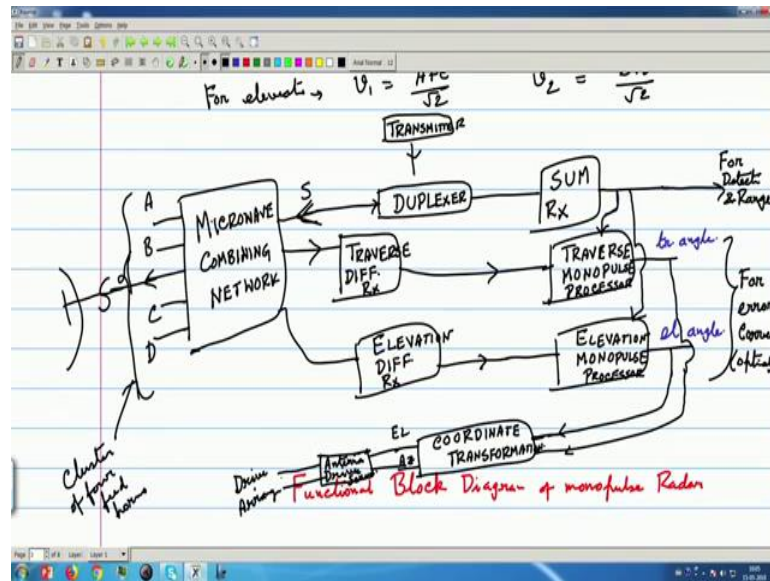 File Edit View Page Tools Options Help
For elevation → V₁ = A+C / √2 V₂ = / √2
TRANSMITTER
For
Detecti
& Range
A
B
C
D
MICROWAVE
COMBINING
NETWORK
S
DUPLEXER
SUM
RX
TRAVERSE
DIFF.
RX
TRAVERSE
MONOPULSE
PROCESSOR
tr angle
ELEVATION
DIFF
RX
ELEVATION
MONOPULSE
PROCESSOR
el angle
For
error
(option
Cluster
of four
feed
horns
EL
AZ
COORDINATE
TRANSFORMATION
Antenna
Drive
Drive
Functional Block Diagram of monopulse Radar
Page 3 of 8 Layer: Layer 1